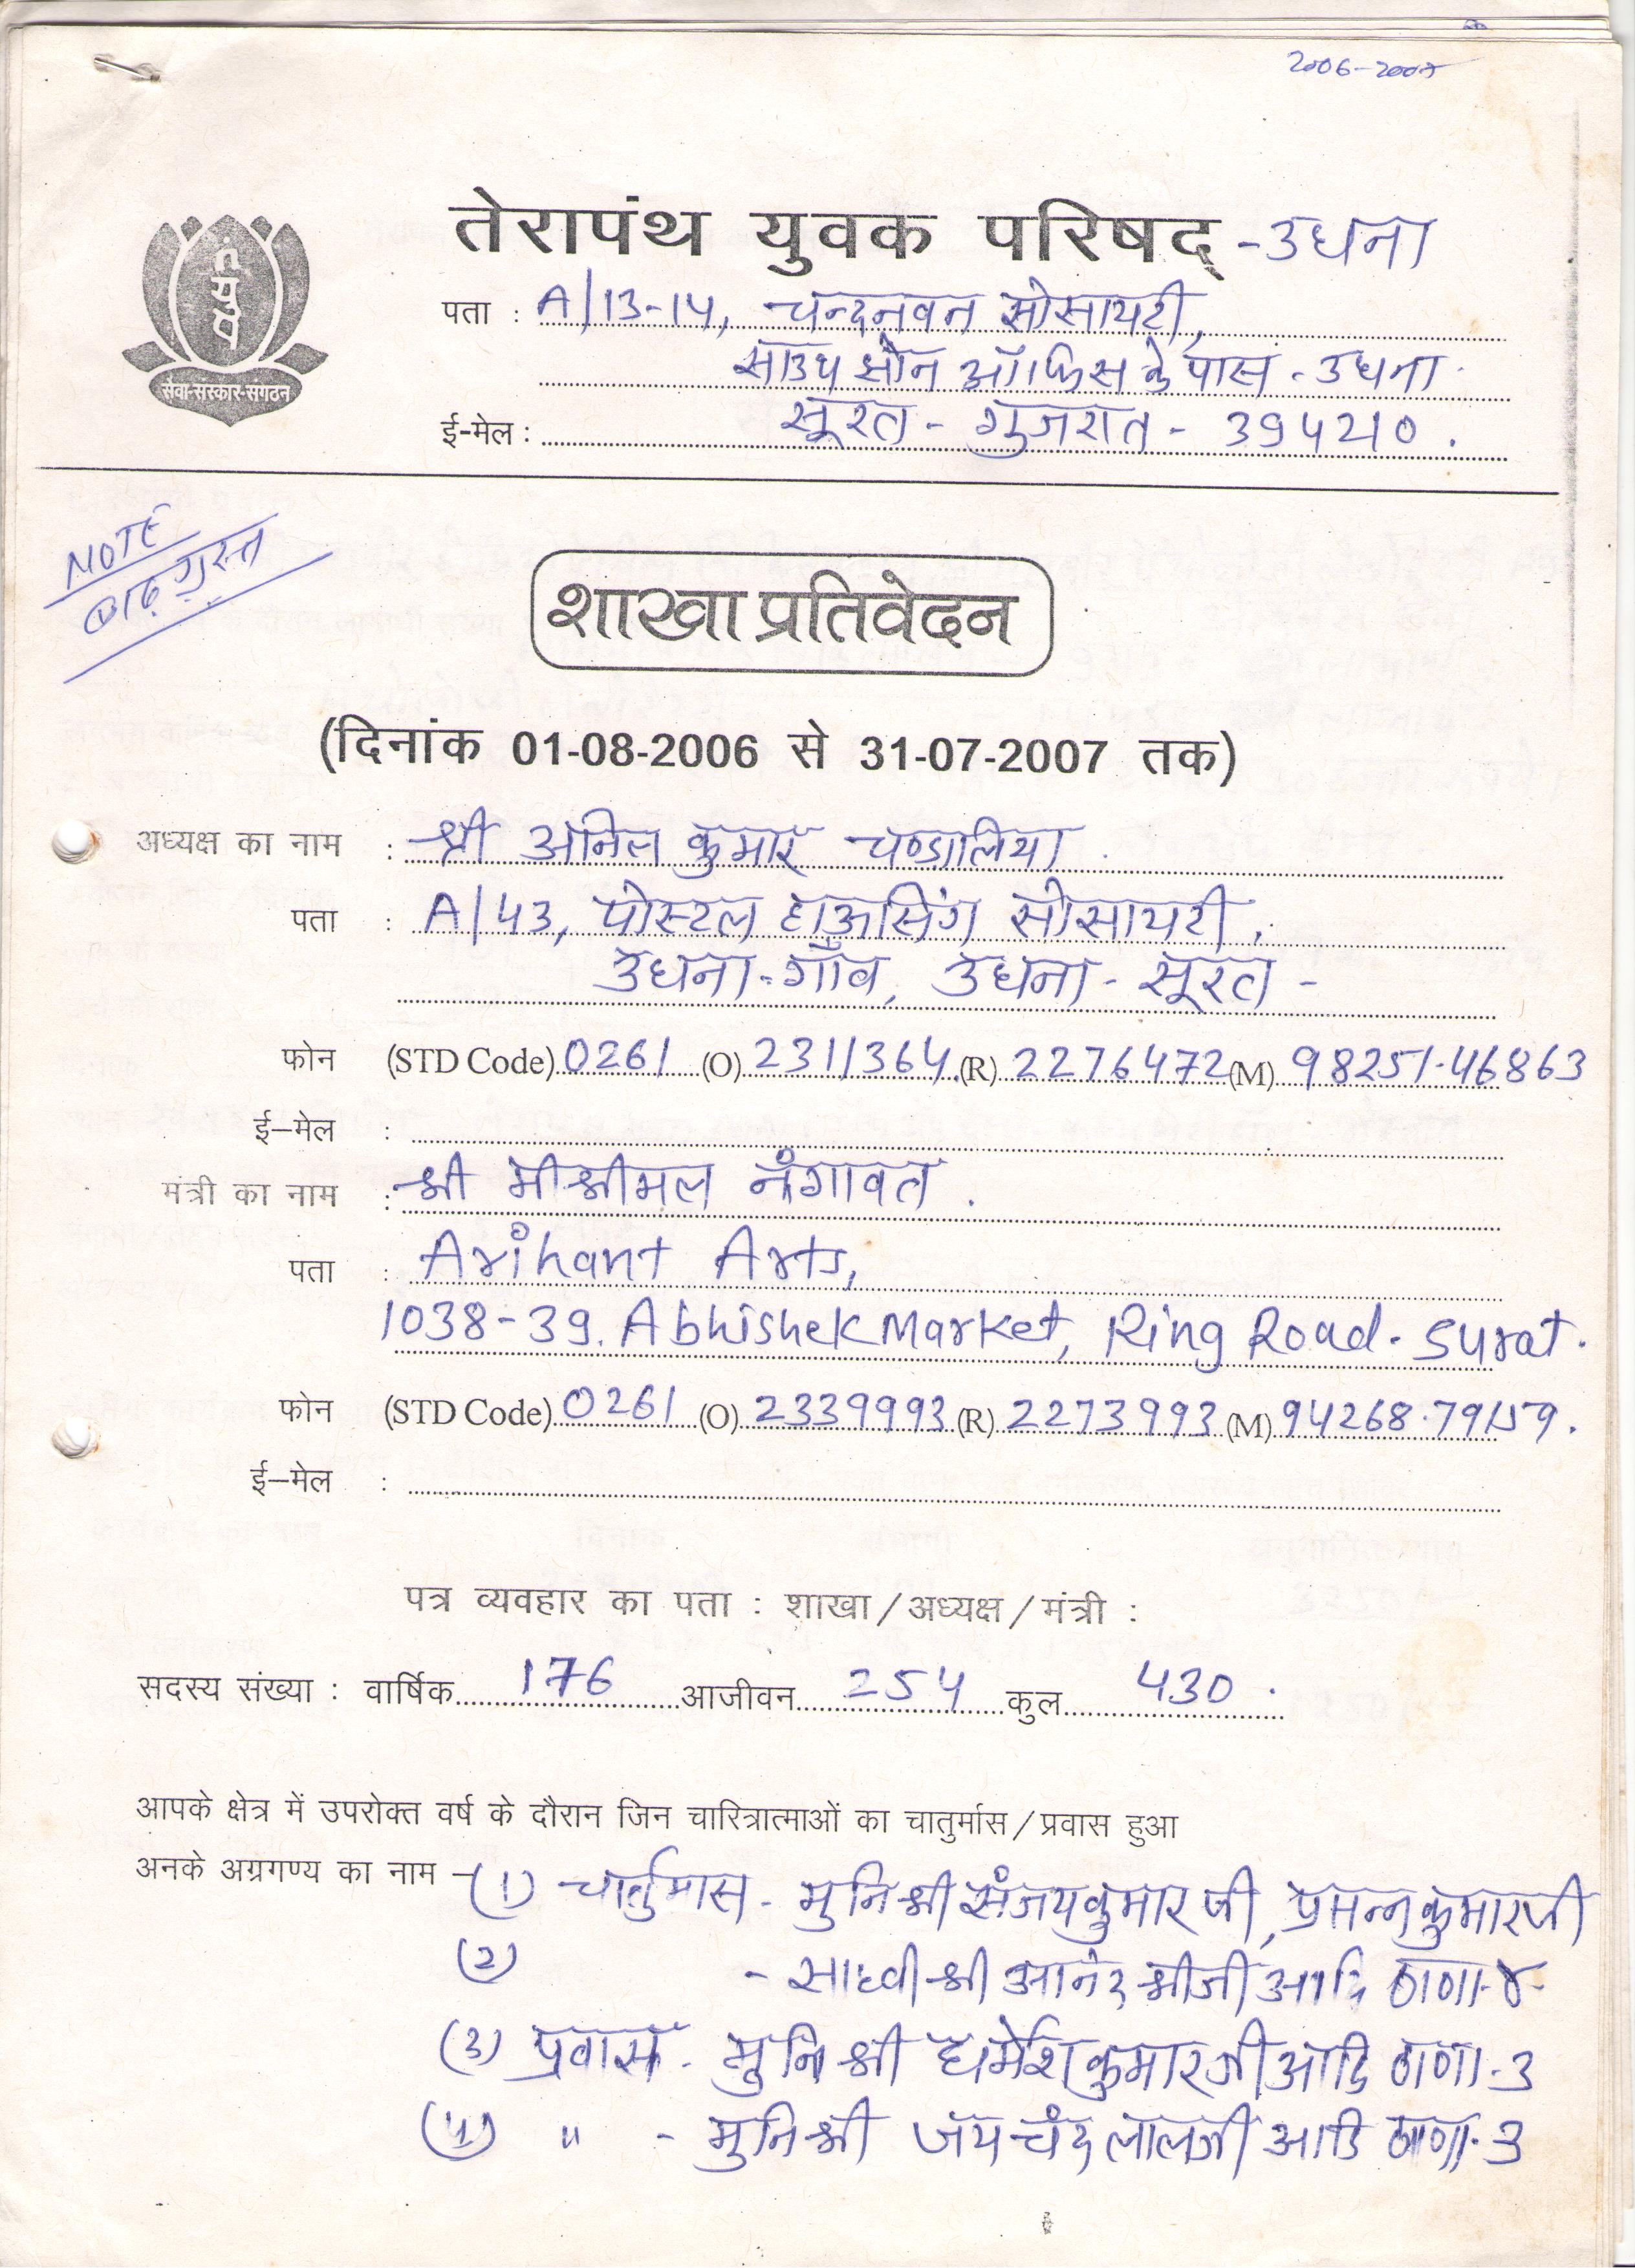 2006-2007
तेरापंथ युवक परिषद् - उधना
तेयुप
सेवा-संस्कार-संगठन
पता : A/13-14, चन्दनवन सोसायटी,
साउथ झोन ऑफिस के पास - उधना
सूरत - गुजरात - 394210.
ई-मेल :
NOTE
बाढ़ ग्रस्त
शाखा प्रतिवेदन
(दिनांक 01-08-2006 से 31-07-2007 तक)
अध्यक्ष का नाम : श्री अनिल कुमार चण्डालिया
पता : A/43, पोस्टल हाऊसिंग सोसायटी,
उधना-गाँव, उधना - सूरत -
फोन (STD Code) 0261 (O) 2311364 (R) 2276472 (M) 98251-46863
ई–मेल :
मंत्री का नाम : श्री मीश्रीमल नंगावत.
पता : Arihant Arts,
1038-39. Abhishek Market, Ring Road. Surat.
फोन (STD Code) 0261 (O) 2339993 (R) 2273993 (M) 94268.79159.
ई–मेल :
पत्र व्यवहार का पता : शाखा / अध्यक्ष / मंत्री :
सदस्य संख्या : वार्षिक 176 आजीवन 254 कुल 430.
आपके क्षेत्र में उपरोक्त वर्ष के दौरान जिन चारित्रात्माओं का चातुर्मास / प्रवास हुआ
अनके अग्रगण्य का नाम – (1) चार्तुमास - मुनि श्री संजयकुमार जी, प्रसन्नकुमारजी
(2) - साध्वी श्री आनंद श्रीजी आदि ठाणा-४
(3) प्रवास - मुनि श्री धर्मेशकुमारजी आदि ठाणा-3
(4) " - मुनि श्री जयचंदलालजी आदि ठाणा-3